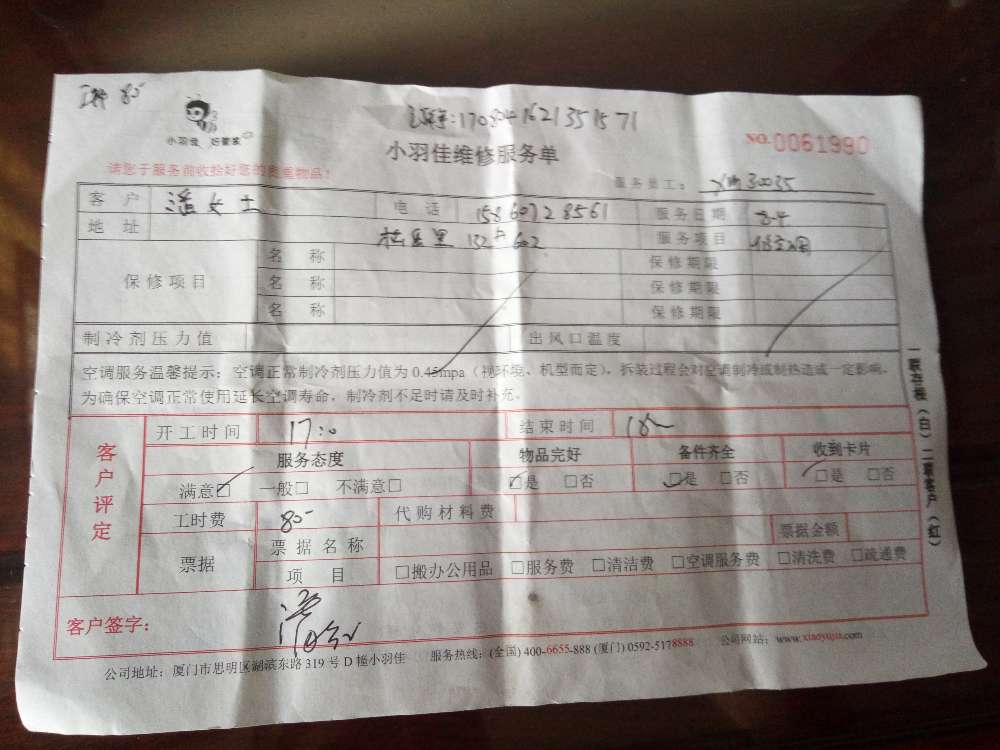 80
小羽佳 好管家
1708041621351571
小羽佳维修服务单
NO.0061990
请您于服务前收拾好您的贵重物品！
服务员工： 30035
客 户 潘女士 电 话 15860728561 服务日期 8-4
地 址 132# 602 服务项目 修空调
保修项目
名 称 保修期限
名 称 保修期限
名 称 保修期限
制冷剂压力值 出风口温度
空调服务温馨提示：空调正常制冷剂压力值为 0.45mpa（视环境、机型而定），拆装过程会对空调制冷或制热造成一定影响，
为确保空调正常使用延长空调寿命，制冷剂不足时请及时补充。
一联存根（白）二联客户（红）
客户评定
开工时间 17:0 结束时间
服务态度 物品完好 备件齐全 收到卡片
满意□ 一般□ 不满意□ □是 □否 □是 □否 □是 □否
工时费 80- 代购材料费
票据 票据名称 票据金额
项 目 □搬办公用品 □服务费 □清洁费 □空调服务费 □清洗费 □疏通费
客户签字：
公司地址：厦门市思明区湖滨东路 319 号 D 幢小羽佳 服务热线：(全国) 400-6655-888 (厦门) 0592-5178888 公司网站：www.xiaoyujia.com